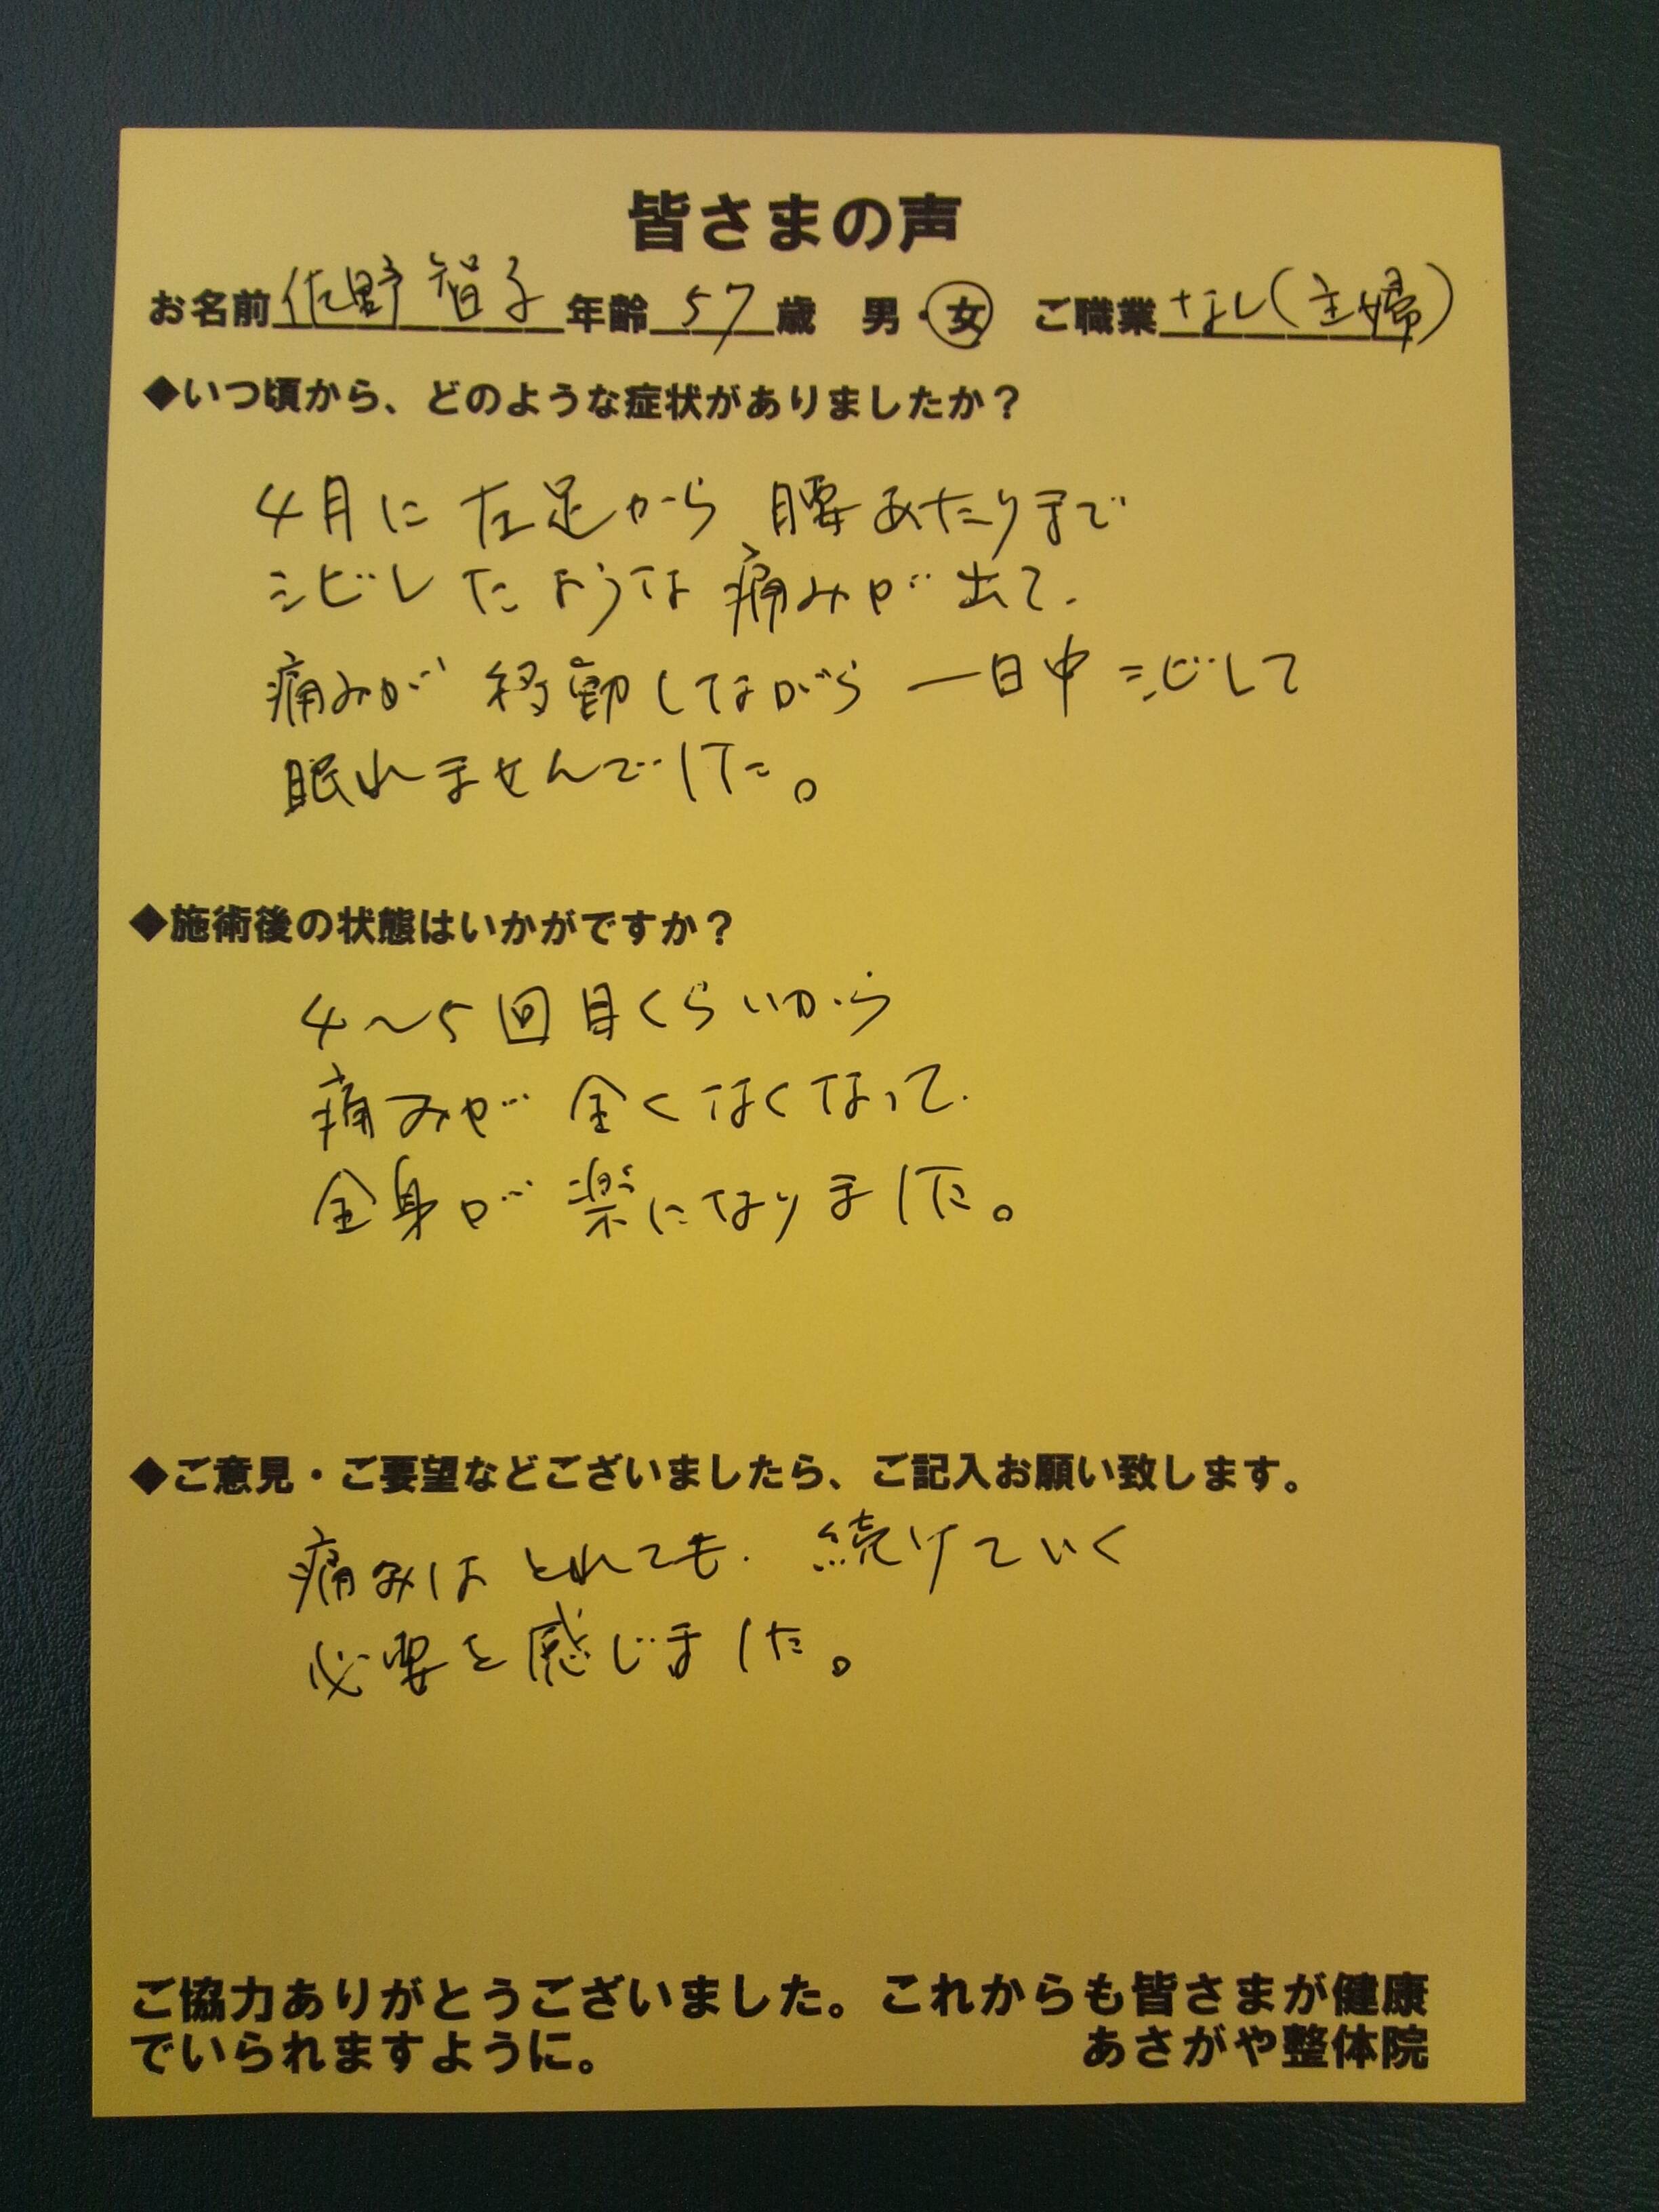 皆さまの声
お名前 佐野 智子 年齢 57 歳 男・女 ご職業 なし(主婦)
◆いつ頃から、どのような症状がありましたか？
4月に 左足から 腰あたりまで
シビレたような 痛みが 出て、
痛みが 移動しながら 一日中 シビレて
眠れませんでした。
◆施術後の状態はいかがですか？
4〜5回目くらいから
痛みが 全くなくなって、
全身が 楽になりました。
◆ご意見・ご要望などございましたら、ご記入お願い致します。
痛みは とれても、続けていく
必要を感じました。
ご協力ありがとうございました。これからも皆さまが健康
でいられますように。 あさがや整体院